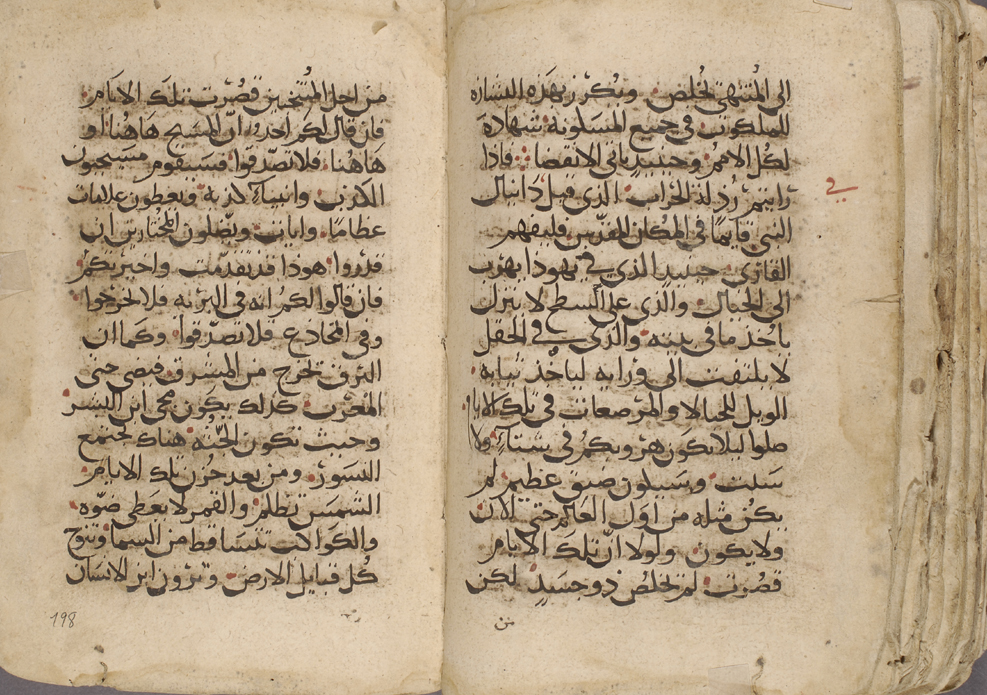 الى المُنتهى يَخلُص. ويُكرَز بهَذِه البشاره
للملكوت في جميع المَسكونة شهادةً
لكُل الامم وحينيدٍ ياتي الانقضا. فاذا
رَايتم رُدلة الخراب. الذي قيل دَانيال
النبي قايمًا في المكان المقدّس فليفهم
القاري. حينيدٍ الذي في يهودا يهرَب
الى الجبال والّذي على السطح لا ينزل
ياخذ ما في بيته والذي في الحقل
لا يلتفت الى وَرايه لياخُذ ثيابه
الويل للحبالا والمرضعات في تلك الايام
صَلوا ليلا يكون هَربكم في شتاءٍ ولا
سَبت وسَيكون ضيق عظيم لم
يكن مثله من اوّل العَالم حتى الان
ولا يكون ولولا انّ تلكَ الايّام
قصُرت لم يَخلُص دو جَسَدٍ لكن
من
من اجل المُنتخبين قصُرت تلك الايام
فان قال لكم احدٌ انّ المسيح هَاهُنا او
هَاهُنا فلا تصَدّقوا فسَيقوم مسيحيون
الكذب وانبياء كذبة ويعطون علامات
عظامًا وايات ويضّلون المختارين ان
قدروا هوذا قد تقدّمت واخبرتكم
فان قالوا لكم انه في البرّيه فلا تخرجوا
وفي المخادع فلا تصَدّقوا وكما ان
البَرق يخرج من المشرق فيضي حتى
المغرب كذلك يكون مجي ابن البشر
وحيث تكون الجُثه هناك تجتمع
النسور ومن بعد حُزن تلك الايام
الشمسُ تظلم والقمر لا يعَطى ضَوّه
والكواكب تتسَاقط من السما وتنوح
كُل قبايل الارض وتَرَون ابن الانسان
198